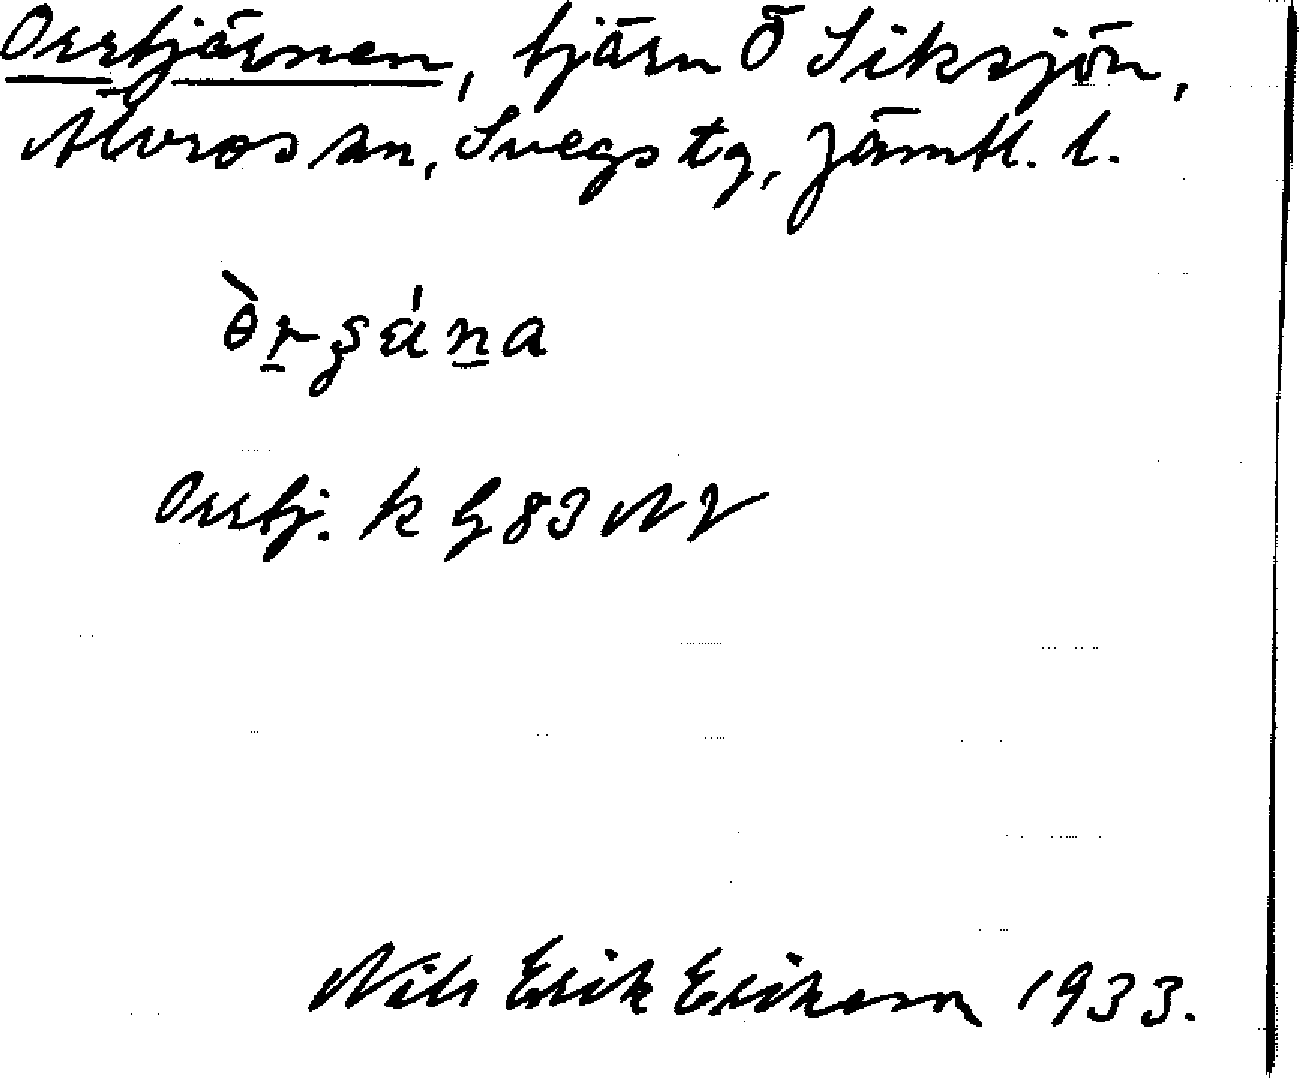 Orrtjärnen, tjärn Ö Siksjön,
Älvros sn, Svegs tg, Jämtl. l.
Orrtj. k G 83 NV
Nils Erik Erikson 1933.